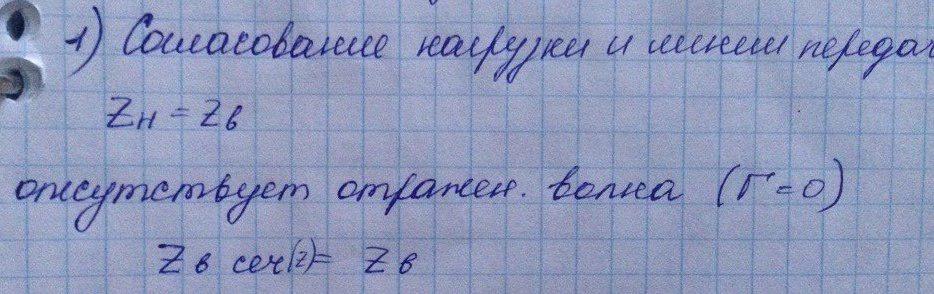 1) Согласование нагрузки и линии передач
Zн = Zв
отсутствует отражен. волна (Г=0)
Zв сеч(z)= Zв